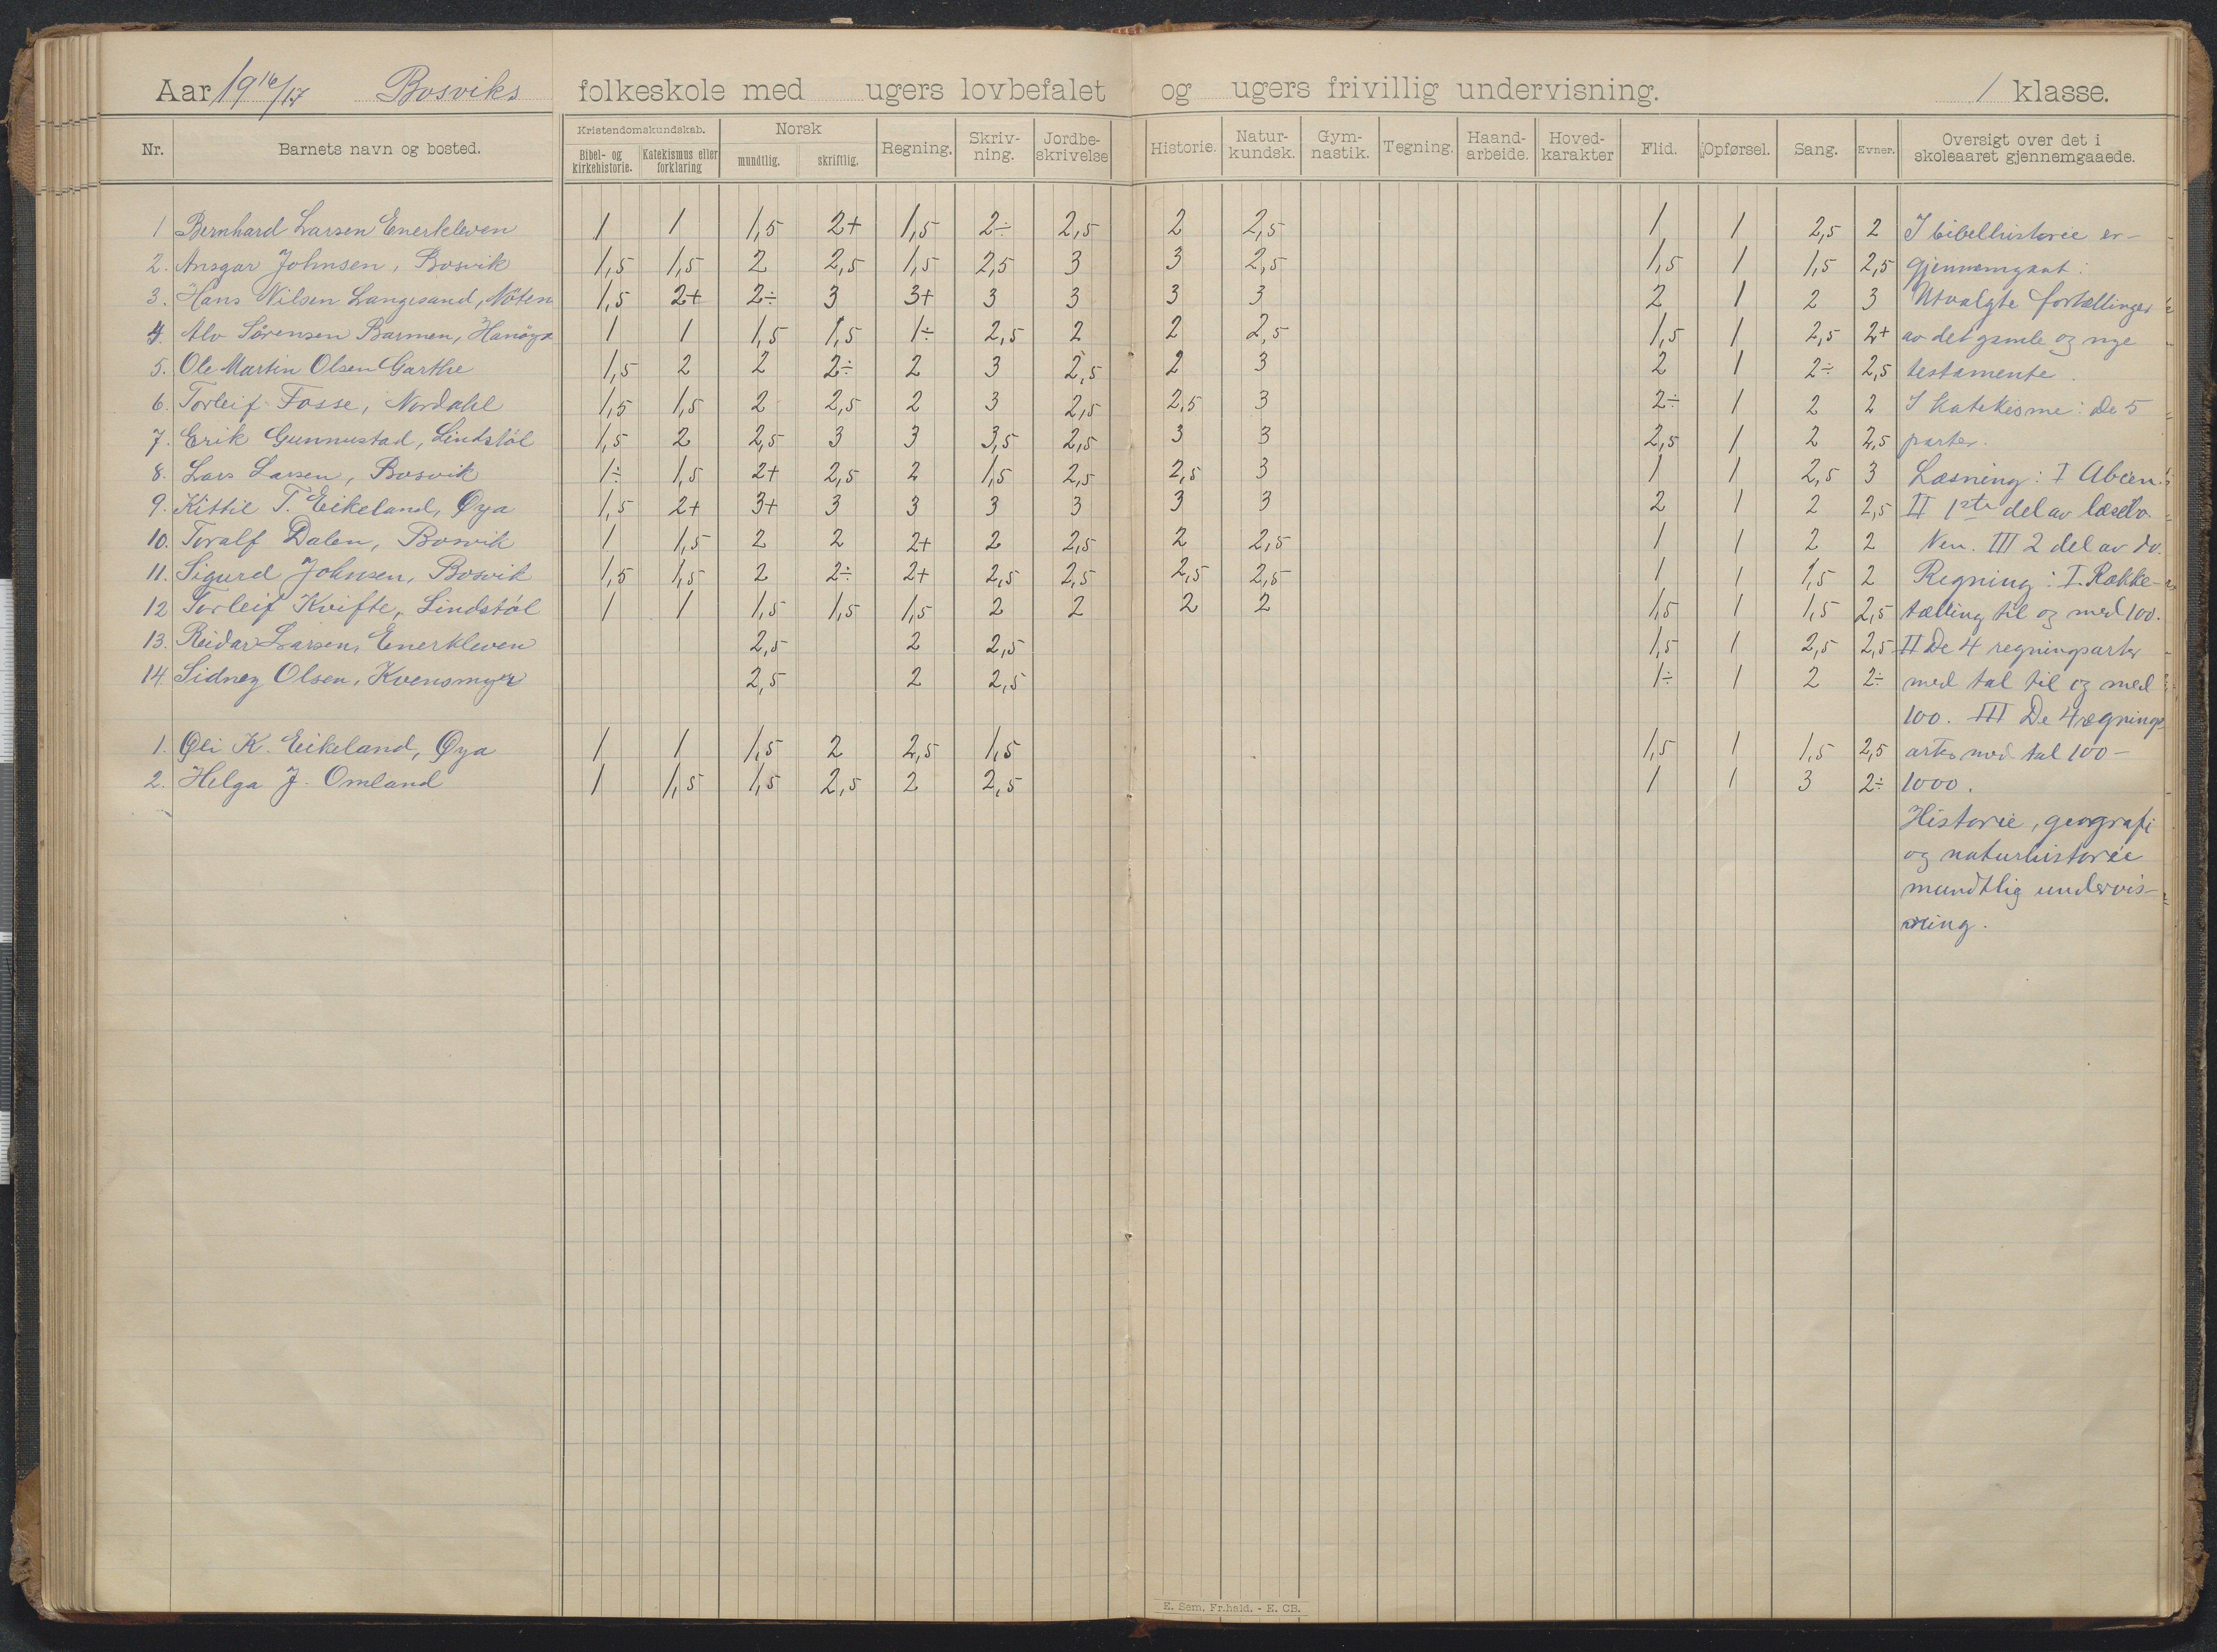 Aar 1916/17 Bosviks folkeskole med ugers lovbefalet og ugers frivillig undervisning. 1 klasse.
Nr. Barnets navn og bosted. Kristendomskundskab. Bibel- og kirkehistorie. Katekismus eller forklaring Norsk mundtlig. skriftlig. Regning. Skriv-ning. Jordbe-skrivelse Historie. Natur-kundsk. Gym-nastik. Tegning. Haand-arbeide. Hoved-karakter Flid. Opførsel. Sang. Evner. Oversigt over det i skoleaaret gjennemgaaede.
1 Bernhard Larsen Enerkleven 1 1 1,5 2+ 1,5 2÷ 2,5 2 2,5 1 1 2,5 2 I bibelhistorie er-
2. Ansgar Johnsen, Bosvik 1,5 1,5 2 2,5 1,5 2,5 3 3 2,5 1,5 1 1,5 2,5 gjennemgaat:
3. Hans Nilsen Langesand, Nöten 1,5 2+ 2÷ 3 3+ 3 3 3 3 2 1 2 3 Utvalgte fortællinger
4. Alv Sörensen Barmen, Hanöya 1 1 1,5 1,5 1÷ 2,5 2 2 2,5 1,5 1 2,5 2+ av det gamle og nye
5. Ole Martin Olsen Garthe 1,5 2 2 2÷ 2 3 2,5 2 3 2 1 2÷ 2,5 testamente.
6. Torleif Fosse, Nordahl 1,5 1,5 2 2,5 2 3 2,5 2,5 3 2÷ 1 2 2 I katekisme: De 5
7. Erik Gunnustad, Lindstöl 1,5 2 2,5 3 3 3,5 2,5 3 3 2,5 1 2 2,5 parter.
8. Lars Larsen, Bosvik 1÷ 1,5 2+ 2,5 2 1,5 2,5 2,5 3 1 1 2,5 3 Læsning: I Abcen.
9. Kittil T. Eikeland, Øya 1,5 2+ 3+ 3 3 3 3 3 3 2 1 2 2,5 II 1ste del av læsebo
10. Toralf Dalen, Bosvik 1 1,5 2 2 2+ 2 2,5 2 2,5 1 1 2 2 ken. III 2 del av do.
11. Sigurd Johnsen, Bosvik 1,5 1,5 2 2÷ 2+ 2,5 2,5 2,5 2,5 1 1 1,5 2 Regning: I. Række-
12 Torleif Kvifte, Lindstöl 1 1 1,5 1,5 1,5 2 2 2 2 1,5 1 1,5 2,5 tælling til og med 100.
13. Reidar Larsen, Enerkleven 2,5 2 2,5 1,5 1 2,5 2,5 II De 4 regningsarter
14. Sidney Olsen, Kvensmyr 2,5 2 2,5 1÷ 1 2 2÷ med tal til og med
100. III De 4 regnings
1. Øli K. Eikeland, Øya 1 1 1,5 2 2,5 1,5 1,5 1 1,5 2,5 arter med tal 100-
2. Helga J. Omland 1 1,5 1,5 2,5 2 2,5 1 1 3 2÷ 1000.
Historie, geografi
og naturhistorie
mundtlig undervis-
ning.
E. Sem, Fr.hald. - E. CB.